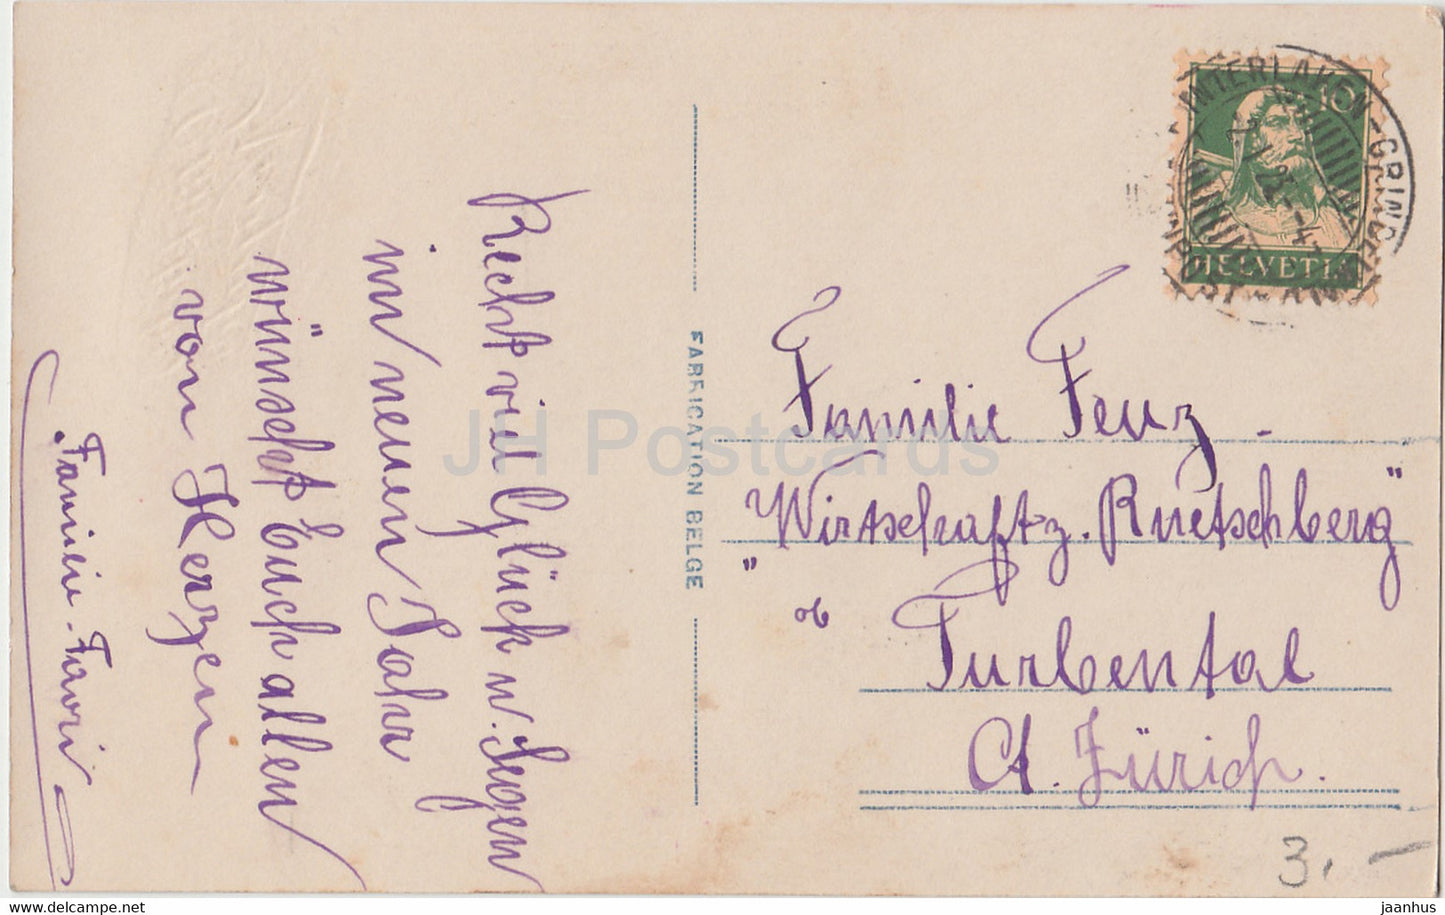 Recht viel Glück u. Segen
im neuen Jahr
wünscht Euch allen
von Herzen
Familie
FABRICATION BELGE
10
HELVETIA
INTERLAKEN - GRINDEL
Familie Feuz -
"Wirtschaft z. Ruetschberg"
ob
Turbental
Ct. Zürich.
3.-
JH Postcards
www.delcampe.net
jaanhus